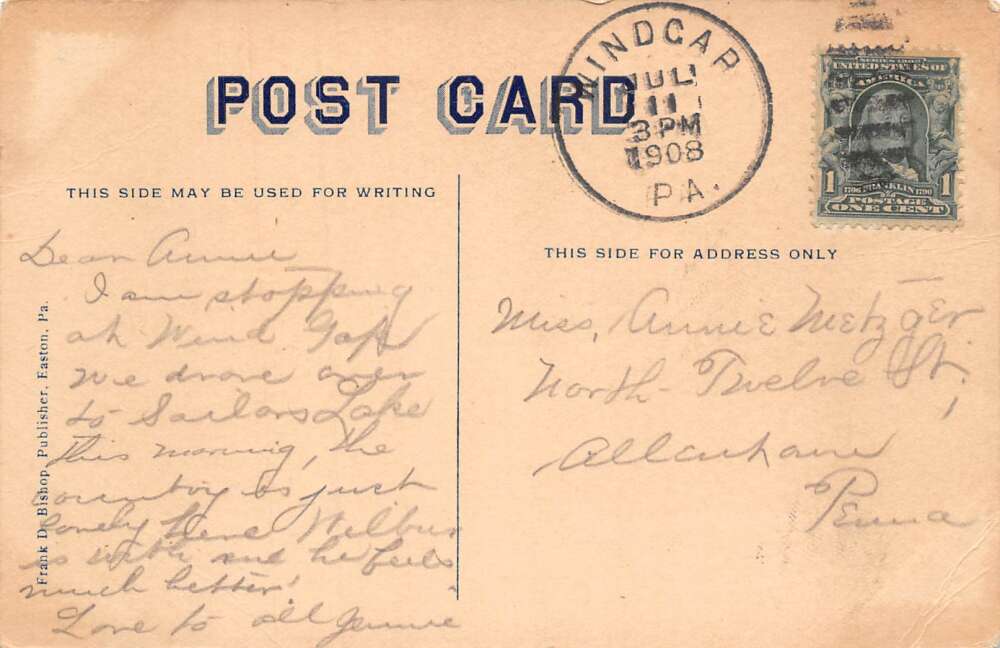 POST CARD
WINDGAP
JUL
11
3 PM
1908
PA.
SERIES 1902
UNITED STATES OF
AMERICA
1 1706 FRANKLIN 1790 1
POSTAGE
ONE CENT
THIS SIDE MAY BE USED FOR WRITING
Dear Annie
I am stopping
at Wind Gap
we drove over
to Sailors Lake
this morning, the
country is just
lovely here Wilbur
is with me he feels
much better.
Love to all Jennie
Frank D. Bishop, Publisher, Easton, Pa.
THIS SIDE FOR ADDRESS ONLY
Miss, Annie Metzger
North-Twelve St,
Allentown
Penna